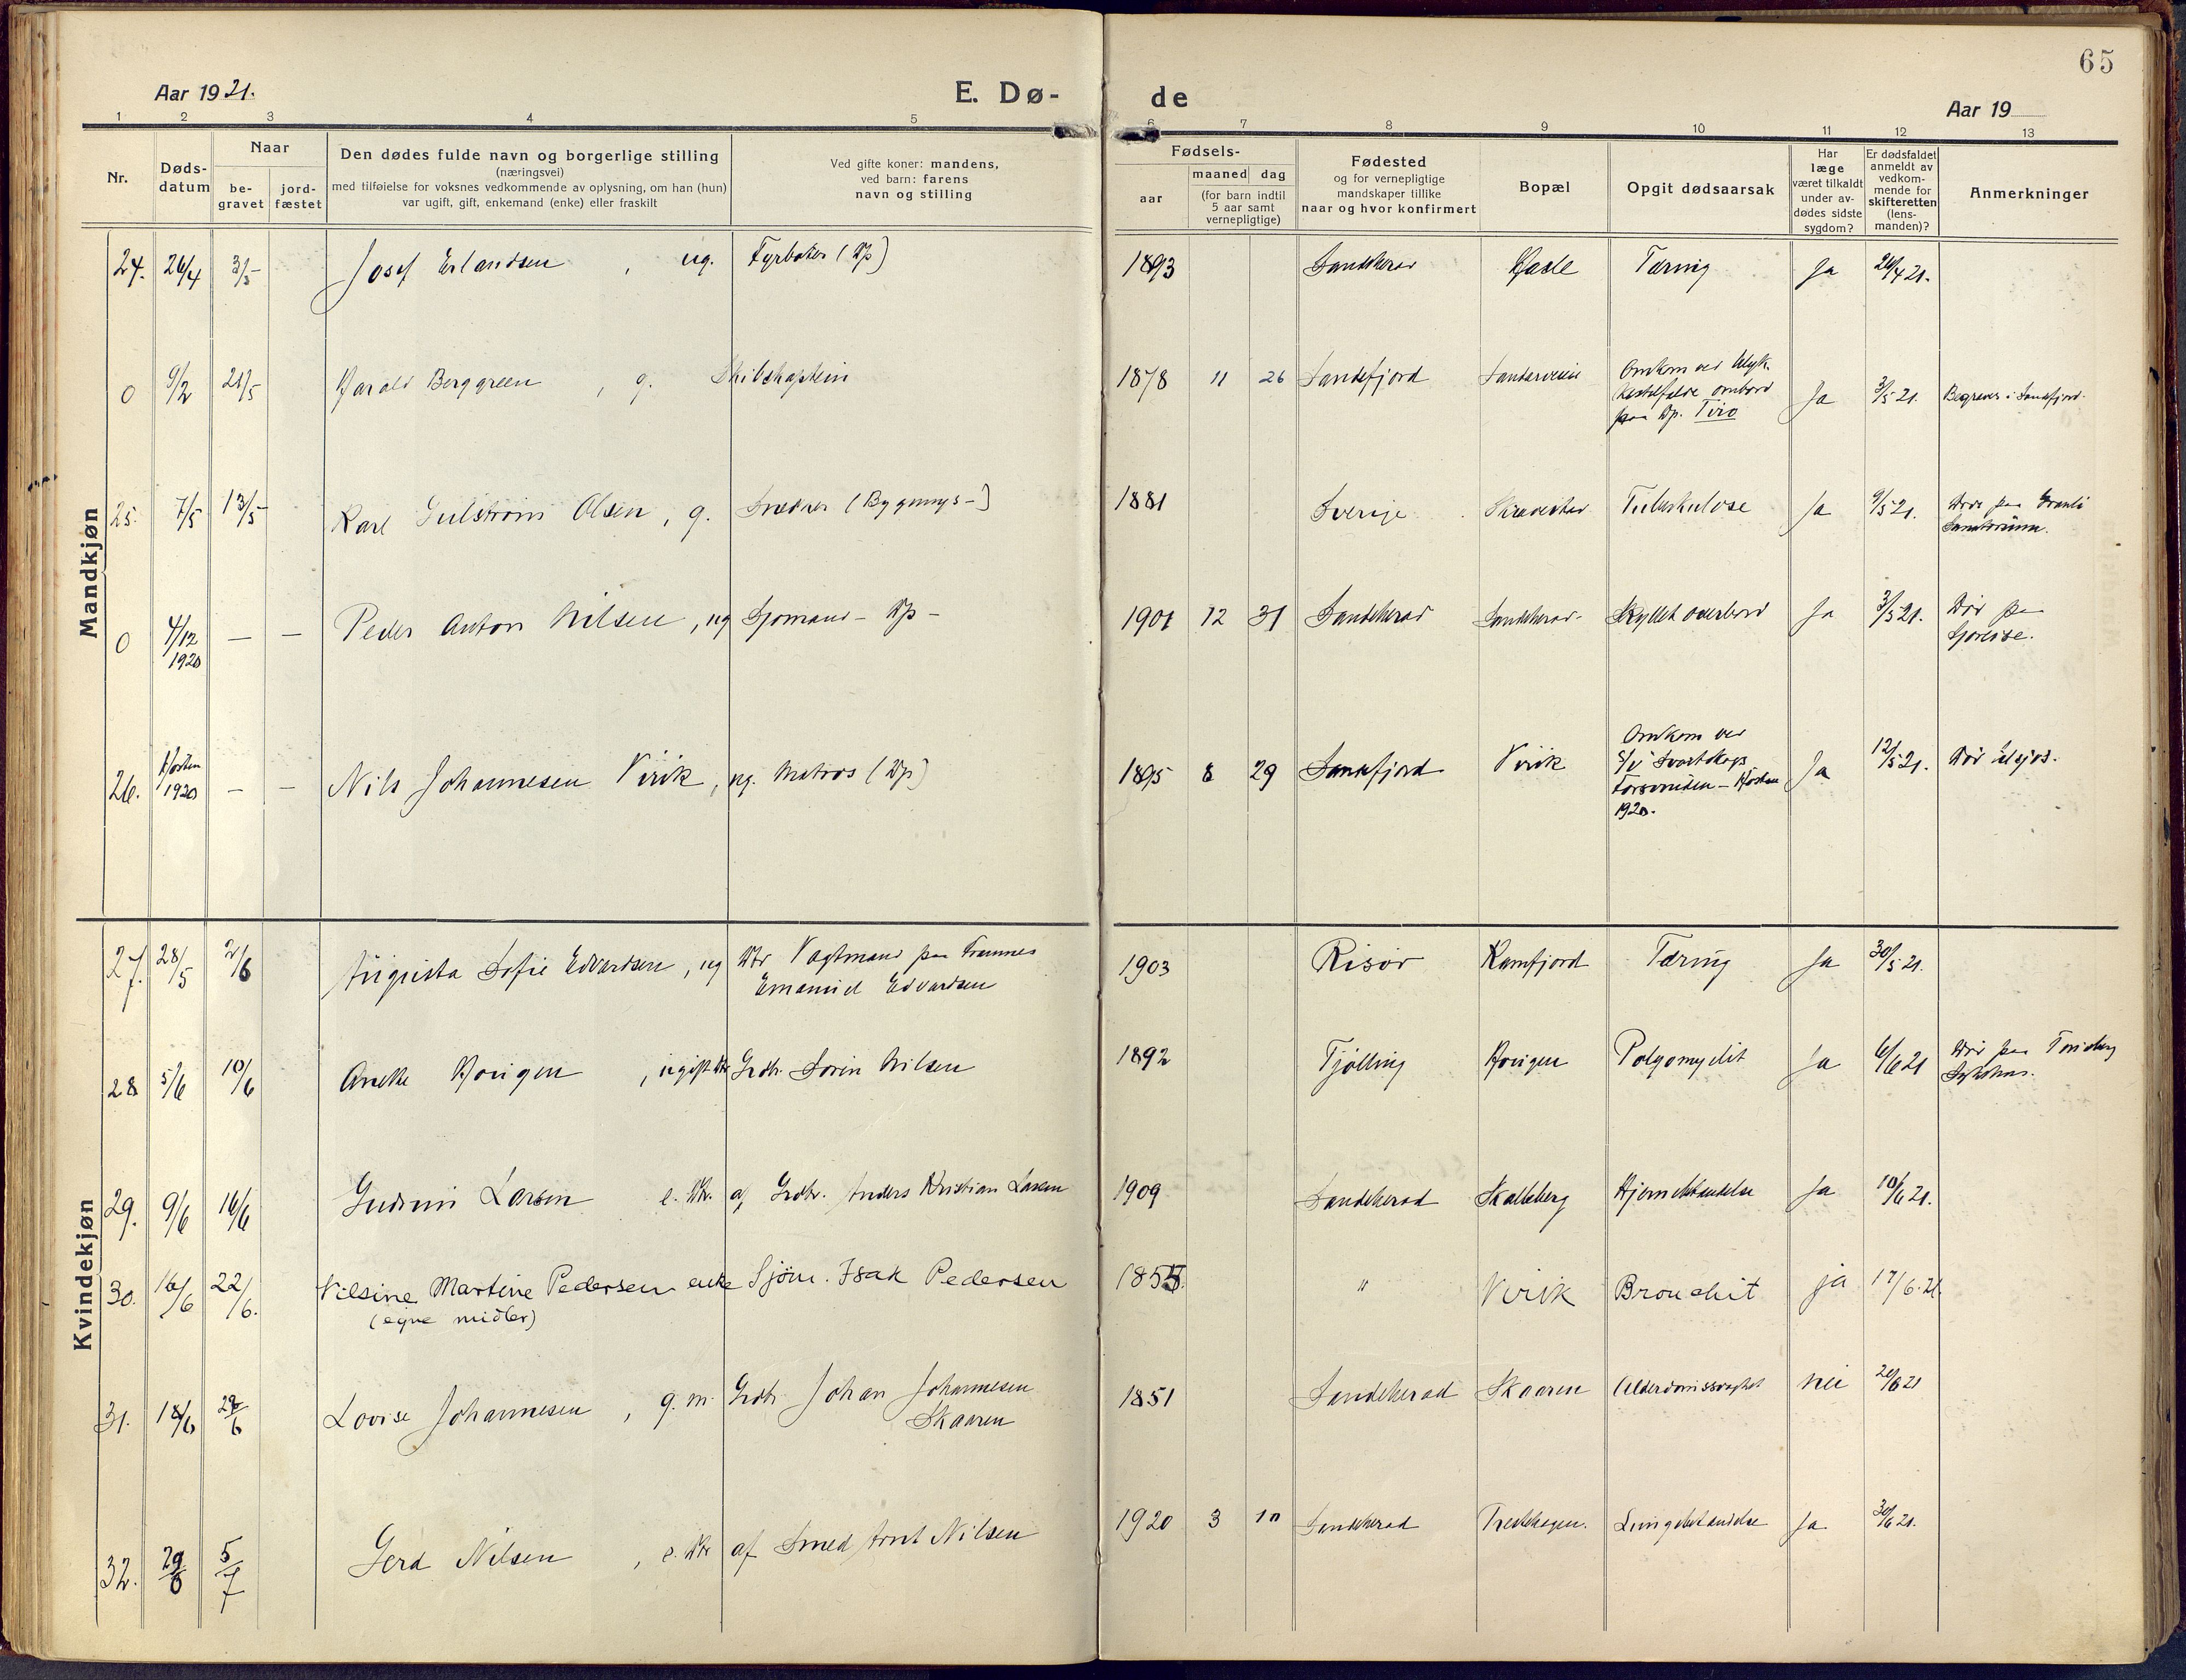 65
Aar 1921.
E. Dø-
de
Aar 19
1 2 3 4 5 6 7 8 9 10 11 12 13
Nr.
Døds-
datum
Naar
be-
gravet
jord-
fæstet
Den dødes fulde navn og borgerlige stilling
(næringsvei)
med tilføielse for voksnes vedkommende av oplysning, om han (hun)
var ugift, gift, enkemand (enke) eller fraskilt
Ved gifte koner: mandens,
ved barn: farens
navn og stilling
Fødsels-
aar
maaned dag
(for barn indtil
5 aar samt
vernepligtige)
Fødested
og for vernepligtige
mandskaper tillike
naar og hvor konfirmert
Bopæl
Opgit dødsaarsak
Har
læge
været tilkaldt
under av-
dødes sidste
sygdom?
Er dødsfaldet
anmeldt av
vedkom-
mende for
skifteretten
(lens-
manden)?
Anmerkninger
Mandkjøn
24. 26/4 3/5- Josef Erlandsen, ug. Fyrbøter 1893 Sandeherad Hasle Tæring Ja 26/4 21.
0 9/2 21/5 Harald Berggreen, g. Skibskaptein 1878 11 26 Sandefjord Omkom ved Ulyk-
ombord
paa Dp. Tiro Ja 3/5 21. Begravet i Sandefjord.
25. 7/5 13/5- Karl Gulstrøm Olsen, g. Snedker (Bygnings-) 1881 Sverige Skravestad Tuberkulose Ja 9/5 21. Døde paa Granli
Sanatorium.
0 4/12
1920 — — Peder Anton Nilsen, ug Sjømand - 1901 12 31 Sandeherad Sandeherad. Skyllet overbord Ja 3/5 21. Død paa
Sjøreise.
26. Høsten
1920 — — Nils Johannesen Virik, ug. Matros 1895 8 29 Sandefjord Virik Omkom ved
S/S Svartskogs
Forsvinden - Høsten
1920. Ja 12/5 21. Død tilsjøs.
Kvindekjøn
27. 28/5 2/6 Augusta Sofie Edvardsen, ug Dtr Vagtmand paa Framnes
Emanuel Edvardsen 1903 Risør Kamfjord Tæring Ja 30/5 21.
28 5/6 10/6 Anette Haugen, ugift Dtr Grdbr. Søren Nilsen 1892 Tjølling Haugen Polyomyelit Ja 6/6 21 Død paa Tønsberg
Sykehus.
29. 9/6 16/6 Gudrun Larsen e. Dtr. af Grdbr. Anders Kristian Larsen 1909 Sandeherad Skalleberg Hjernebetændelse Ja 10/6 21.
30. 16/6 22/6. Nilsine Martine Pedersen enke Sjøm. Isak Pedersen
(egne midler) 1855. " Virik Bronchit ja 17/6. 21.
31. 18/6 Lovise Johannesen, g. m. Grdbr. Johan Johannesen
Skaaren 1851 Sandeherad Skaaren Alderdomssvaghet nei 20/6 21
32. 29/6 5/7 Gerd Nilsen, e. Dtr af Smed Arnt Nilsen 1920 3 10 Sandeherad Lungebetændelse Ja 30/6 21.